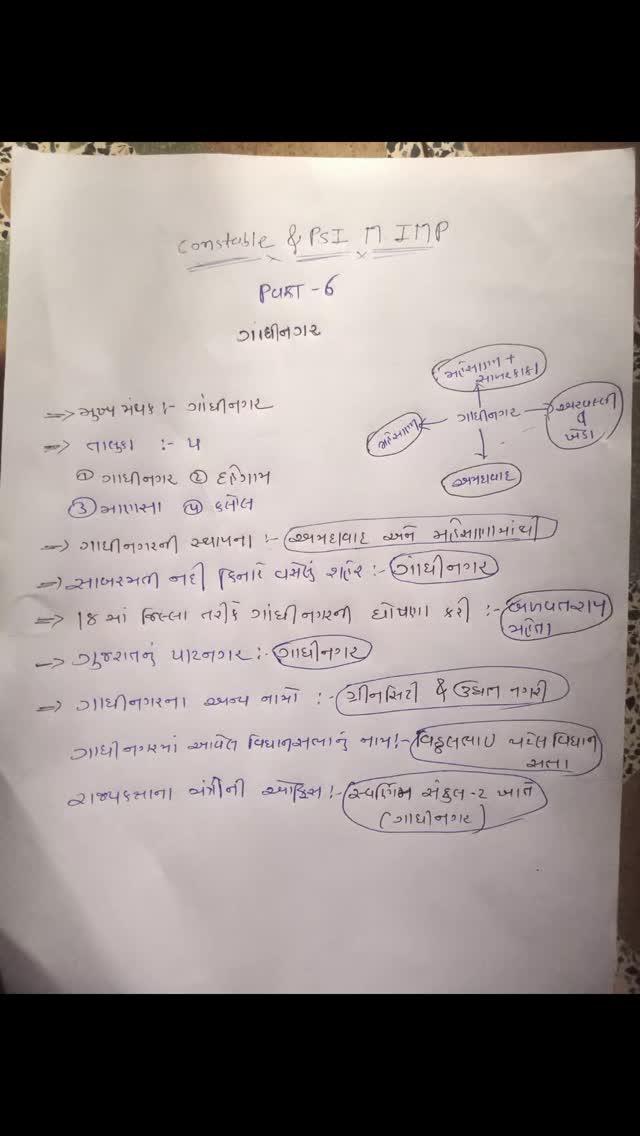 Constable & PSI M IMP
Part - 6
ગાંધીનગર
મહેસાણા + સાબરકાંઠા
મહેસાણા ગાંધીનગર અરવલ્લી વ ખેડા
અમદાવાદ
=> મુખ્ય મથક :- ગાંધીનગર
=> તાલુકા :- ૫
① ગાંધીનગર ② દહેગામ
③ માણસા ૫ કલોલ
=> ગાંધીનગરની સ્થાપના :- અમદાવાદ અને મહેસાણામાંથી
=> સાબરમતી નદી કિનારે વસેલું શહેર :- ગાંધીનગર
=> 18 માં જિલ્લા તરીકે ગાંધીનગરની ઘોષણા કરી :- બળવતરાય મહેતા
=> ગુજરાતનું પાટનગર :- ગાંધીનગર
=> ગાંધીનગરના અન્ય નામો :- ગ્રીનસિટી & ઉદ્યત નગરી
ગાંધીનગરમાં આવેલ વિધાનસભાનું નામ :- વિઠ્ઠલભાઇ પટેલ વિધાન સભા
રાજ્યકક્ષાના મંત્રીની ઓફિસ :- સ્વર્ણિમ સંકુલ-૨ ખાતે (ગાંધીનગર)